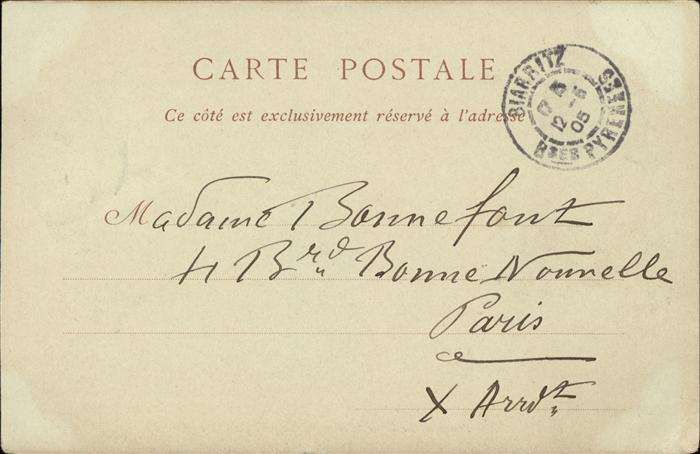 CARTE POSTALE
Ce côté est exclusivement réservé à l'adresse
BIARRITZ
12 -5
05
BSES PYRENEES
Madame Bonnefont
4 Brd Bonne Nouvelle
Paris
X Arrdt